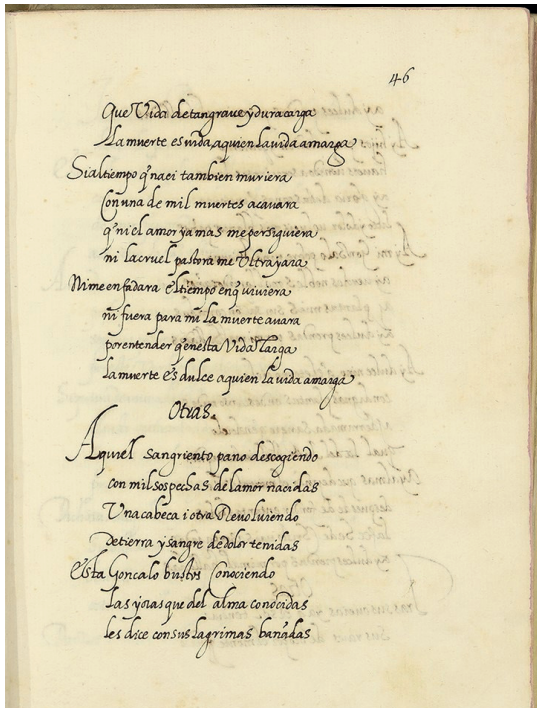 46
Que Vida de tan graue y dura carga
La muerte es vida, a quien la vida amarga
Si al tiempo q̃ naci tambien muriera
Con una de mil muertes acauara
q̃ ni el amor ya mas me persiguiera
ni la cruel pastora me Vltrayara
Ni me enfadara el tiempo en q̃ viuiera
ni fuera para mi la muerte auara
por entender q̃ en esta Vida Larga
la muerte es dulce a quien la vida amarga
Otras.
Aquel sangriento pano descogiendo
con mil sospechas del amor nacidas
Una cabeca i otra Reuoluiendo
De tierra y sangre de dolor tenidas
Esta Goncalo bustos Conociendo
las yoras que del alma conocidas
les dice con sus lagrimas banadas